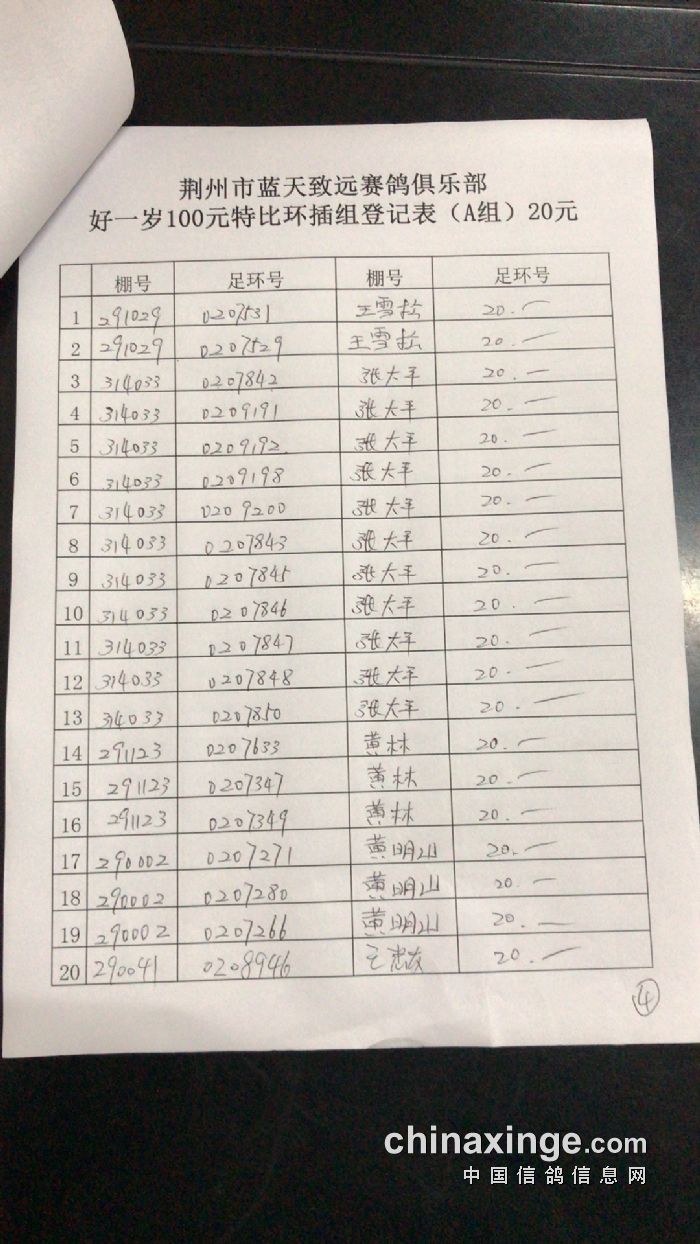 荆州市蓝天致远赛鸽俱乐部
好一岁100元特比环插组登记表（A组）20元
棚号 足环号 棚号 足环号
1 291029 0207531 王雪松 20.一
2 291029 0207529 王雪松 20.一
3 314033 0207842 张大平 20.一
4 314033 0209191 张大平 20.一
5 314033 0209192 张大平 20.一
6 314033 0209198 张大平 20.一
7 314033 0209200 张大平 20.一
8 314033 0207843 张大平 20.一
9 314033 0207845 张大平 20.一
10 314033 0207846 张大平 20.一
11 314033 0207847 张大平 20.一
12 314033 0207848 张大平 20.一
13 314033 0207850 张大平 20.一
14 291123 0207633 黄林 20.一
15 291123 0207347 黄林 20.一
16 291123 0207349 黄林 20.一
17 290002 0207271 黄明山 20.一
18 290002 0207280 黄明山 20.一
19 290002 0207266 黄明山 20.一
20 290041 0208946 20.一
④
chinaxinge.com
中国信鸽信息网